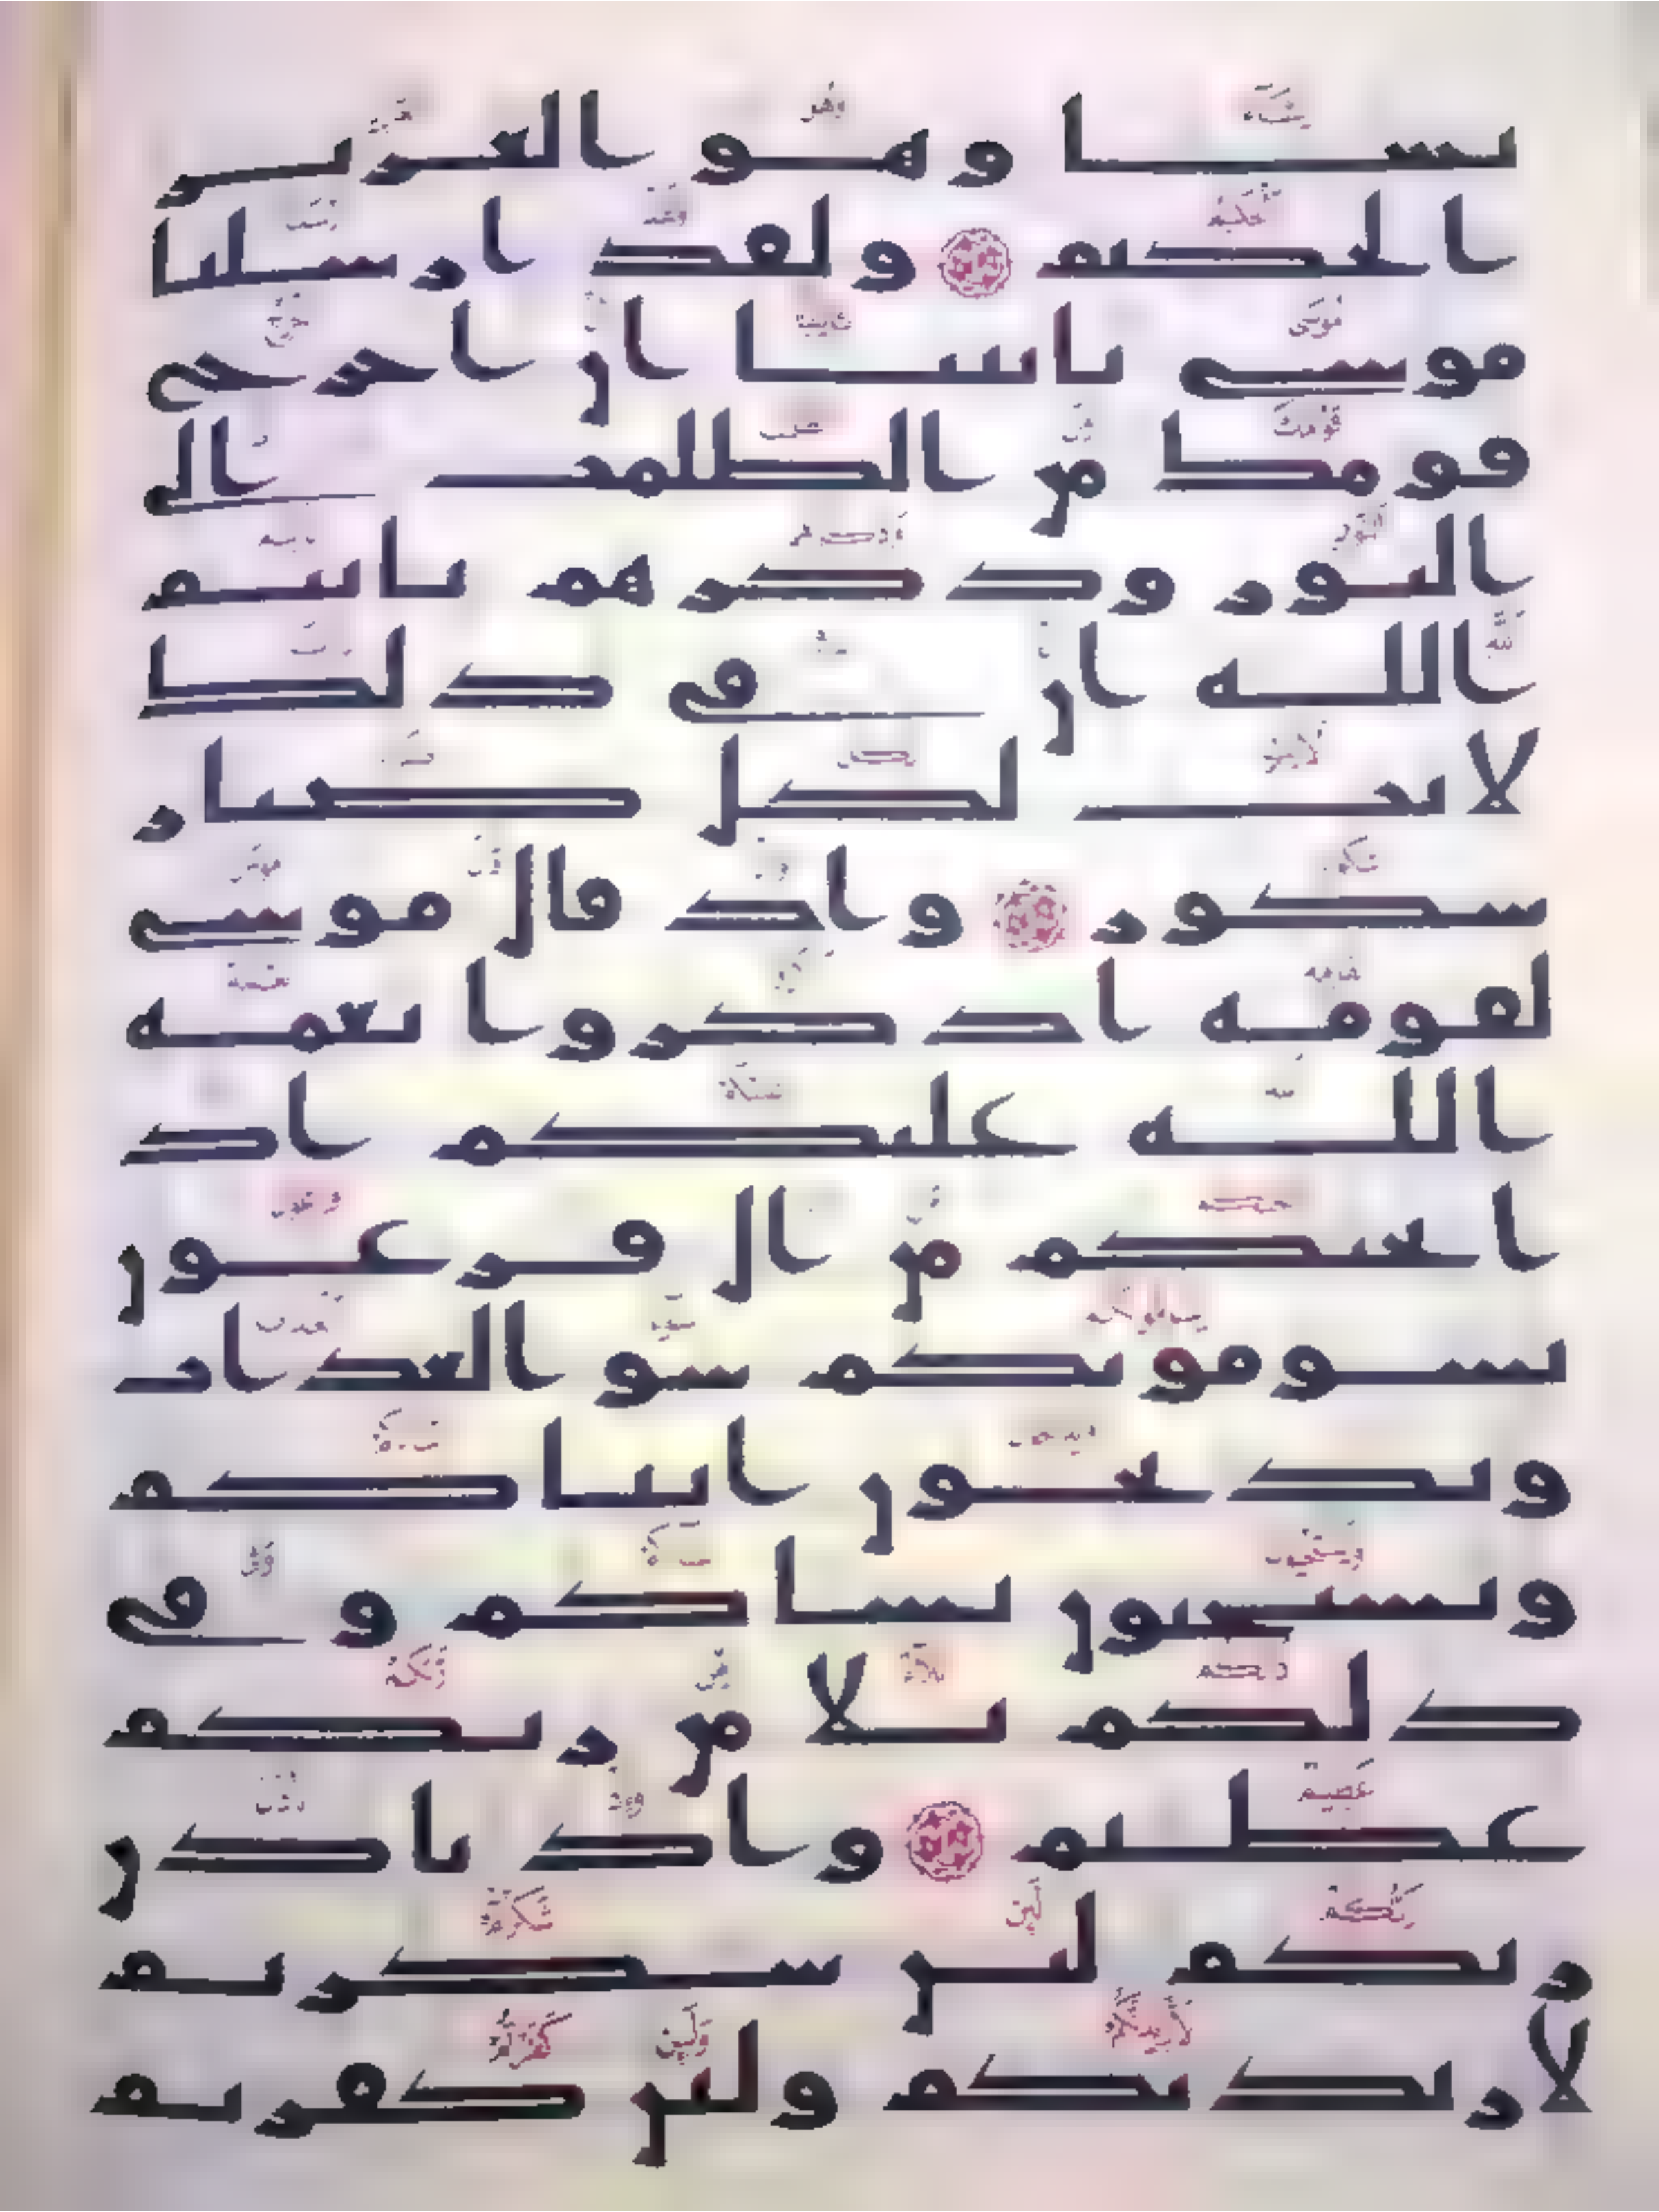 يشا وهو العزيز
الحكيم ولقد ارسلنا
موسى بايتنا ان اخرج
قومك من الظلمت الى
النور وذكرهم باييم
الله ان في ذلك
لايت لكل صبار
شكور واذ قال موسى
لقومه اذكروا نعمه
الله عليكم اذ
انجيكم من ال فرعون
يسومونكم سو العذاب
ويذبحون ابناكم
ويستحيون نساكم و في
ذلكم بلا من ربكم
عظيم واذ تاذن
ربكم لين شكرتم
لازيدنكم ولين كفرتم